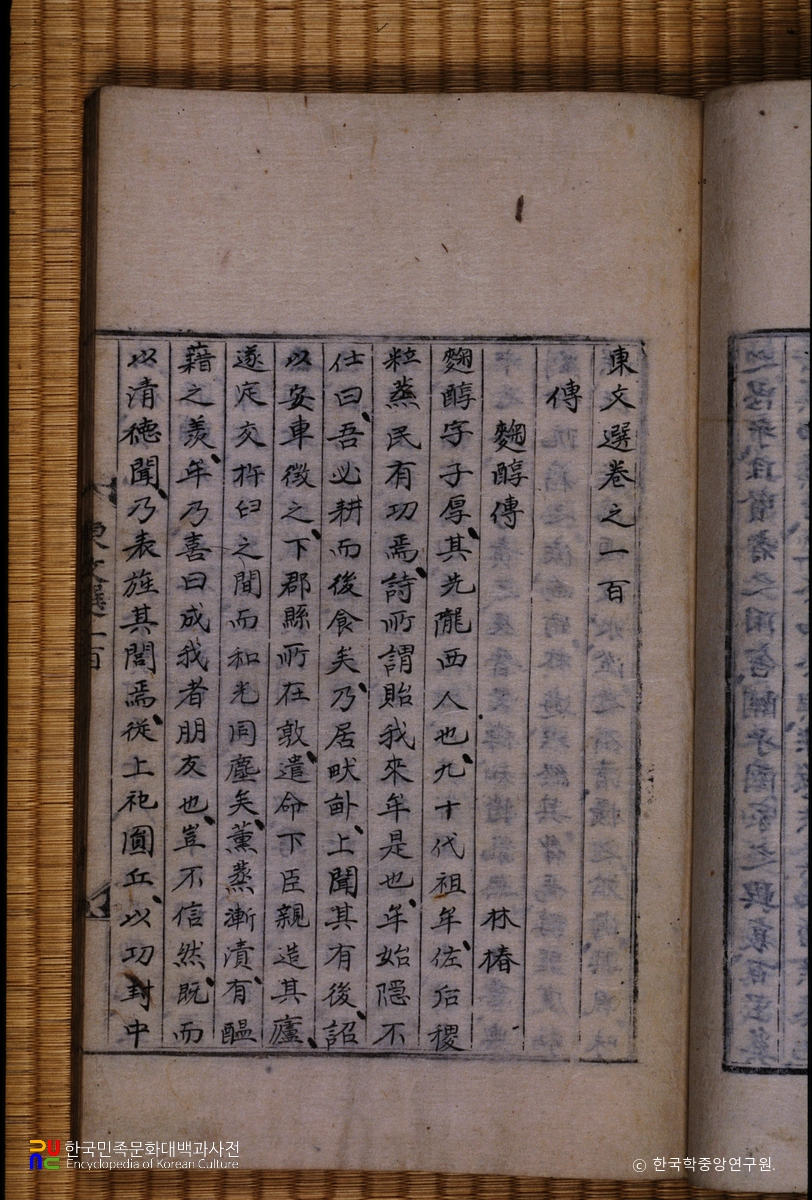 東文選卷之一百
傳
麴醇傳 林椿
麴醇字子厚其先隴西人也九十代祖牟佐后稷
粒蒸民有功焉詩所謂貽我來牟是也牟始隱不
仕曰吾必耕而後食矣乃居畎畝上聞其有後詔
以安車徵之下郡縣所在敦遣命下臣親造其廬
遂定交杵臼之間而和光同塵矣薰蒸漸漬有醞
藉之羙牟乃喜曰成我者朋友也豈不信然既而
以清德聞乃表旌其閭焉從上祀圓丘以功封中
東文選一百
한국민족문화대백과사전
Encyclopedia of Korean Culture
© 한국학중앙연구원.